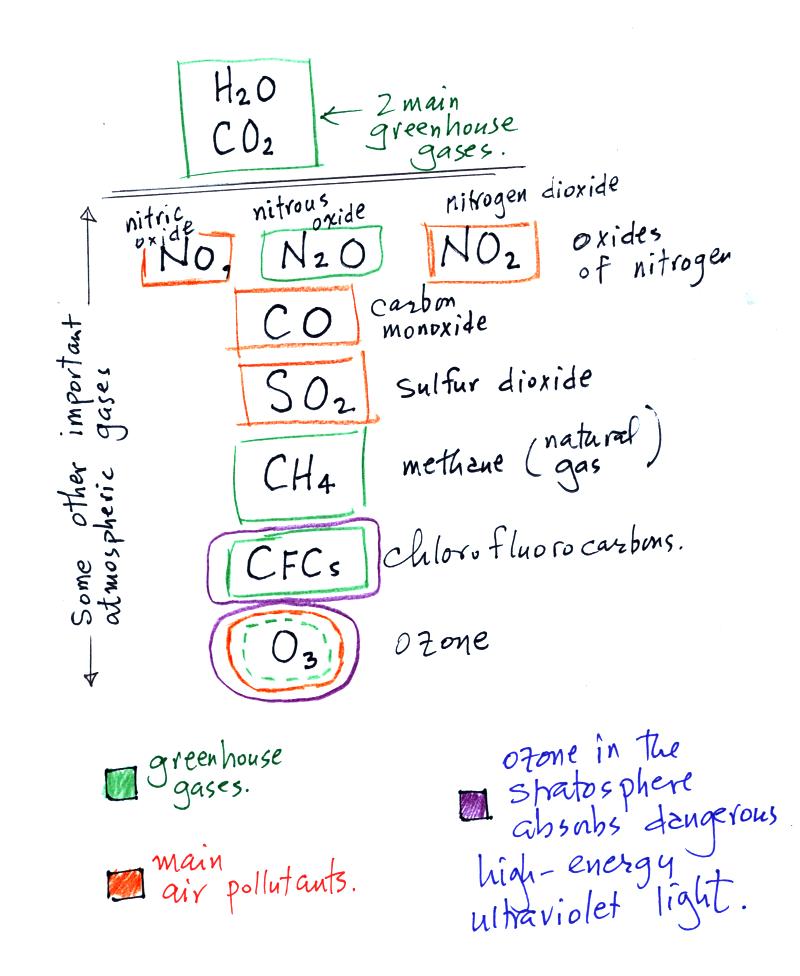 H2O
CO2
2 main
greenhouse
gases.
nitric
oxide
nitrous
oxide
nitrogen dioxide
NO
N2O
NO2
oxides
of nitrogen
CO
carbon
monoxide
SO2
sulfur dioxide
CH4
methane (natural
gas)
CFCs
chlorofluorocarbons.
O3
ozone
Some other important
atmospheric gases
greenhouse
gases.
main
air pollutants.
ozone in the
stratosphere
absorbs dangerous
high-energy
ultraviolet light.